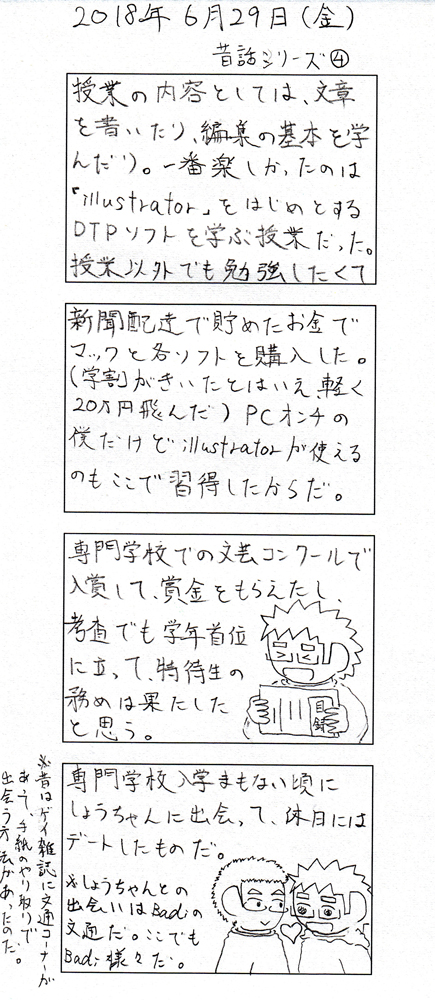 2018年6月29日(金)
昔話シリーズ④
授業の内容としては、文章
を書いたり、編集の基本を学
んだり。一番楽しかったのは
「illustrator」をはじめとする
DTPソフトを学ぶ授業だった。
授業以外でも勉強したくて
新聞配達で貯めたお金で
マックと各ソフトを購入した。
(学割がきいたとはいえ軽く
20万円飛んだ)PCオンチの
僕だけどillustratorが使える
のもここで習得したからだ。
専門学校での文芸コンクールで
入賞して、賞金をもらえたし、
考査でも学年首位
に立って、特待生の
務めは果たした
と思う。
目録
専門学校入学まもない頃に
しょうちゃんに出会って、休日には
デートしたものだ。
※しょうちゃんとの
出会いはBadiの
文通だ。ここでも
Badi様々だ。
※昔はゲイ雑誌に文通コーナーが
あって、手紙のやり取りで
出会う方法があったのだ。